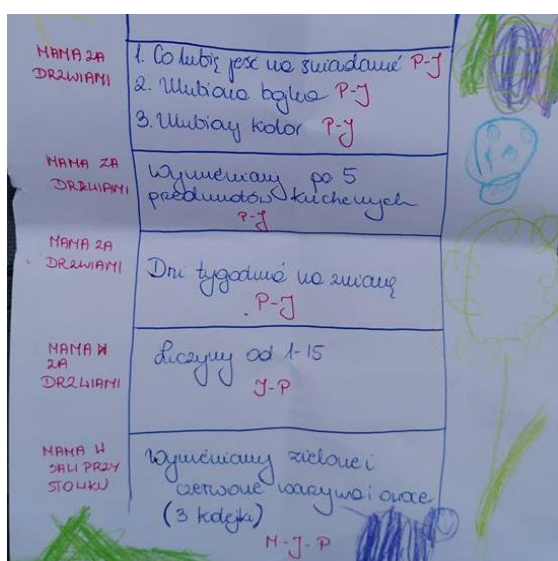 MAMA ZA
DRZWIAMI
1. Co lubię jeść na śniadanie P-J
2. Ulubiona bajka P-J
3. Ulubiony kolor P-J
MAMA ZA
DRZWIAMI
Wymieniamy po 5
przedmiotów kuchennych
P-J
MAMA ZA
DRZWIAMI
Dni tygodnia na zmianę
P-J
MAMA
ZA
DRZWIAMI
Liczymy od 1-15
J-P
MAMA W
SALI PRZY
STOLIKU
Wymieniamy zielone i
czerwone warzywa i owoce
(3 kolejki)
M-J-P